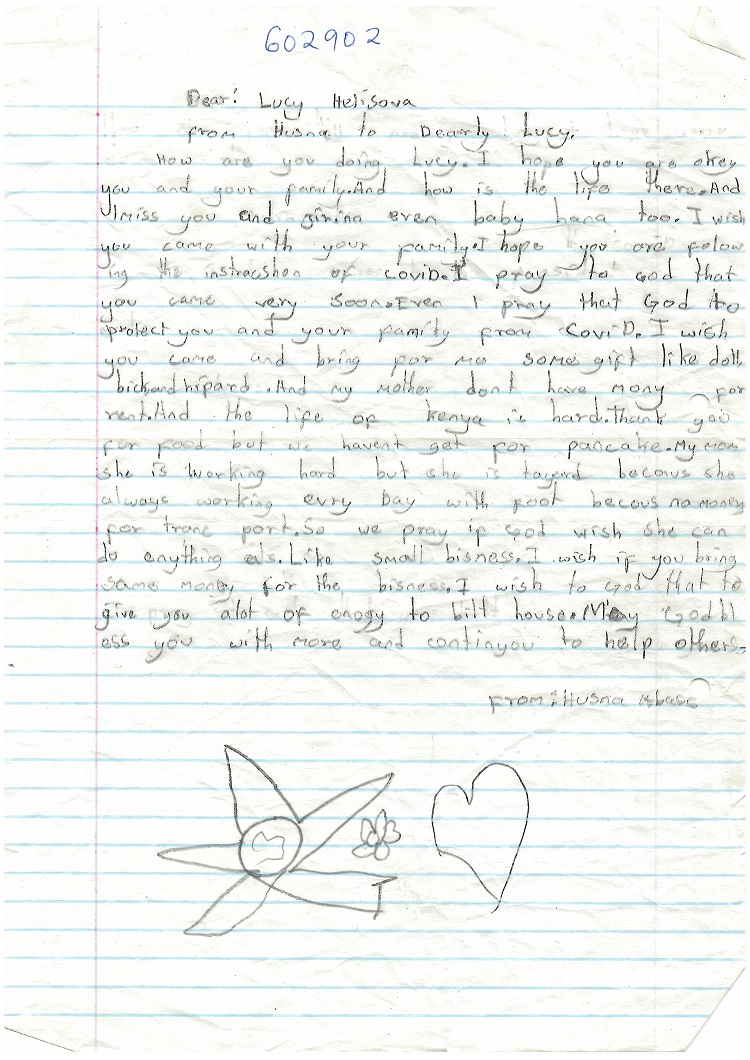 602902
Dear: Lucy Helisova
from Husna to Dearly Lucy.
How are you doing Lucy. I hope you are okey
you and your family. And how is the life there. And
I miss you and girina even baby hana too. I wish
you came with your family. I hope you are folow
ing the instracshen of coviD. I pray to God that
you came very soon. Even I pray that God to
protect you and your family from CoviD. I wish
you came and bring for me some gift like doll,
bick, and hipard. And my mother dont have mony for
rent. And the life of kenya is hard. Thank you
for food but we havent get for pancake. My mom
she is working hard but she is tayard becaus she
always working evry Day with foot becous no money
for tranc port. So we pray if God wish she can
do enything els. Like small bisness. I wish if you bring
same money for the bisness. I wish to God that to
give you alot of enogy to bilt house. May God bl
ess you with more and continyou to help others.
From: Husna
I